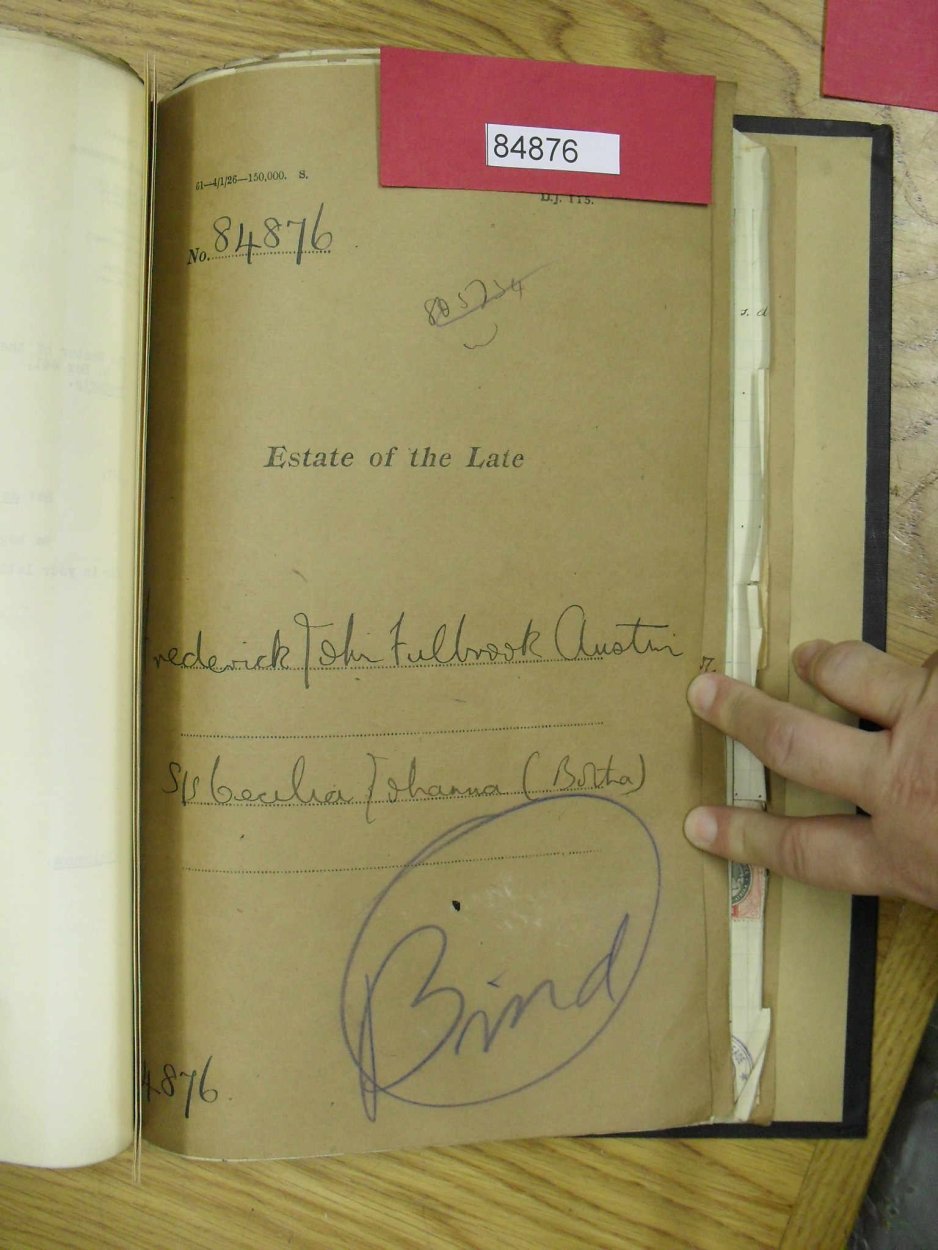 84876
61—4/1/26—150,000. S.
D.J. 115.
No. 84876
Estate of the Late
Frederick John Fulbrook Austin
S/S Cecilia Johanna (Botha)
Bind
4876
s. d